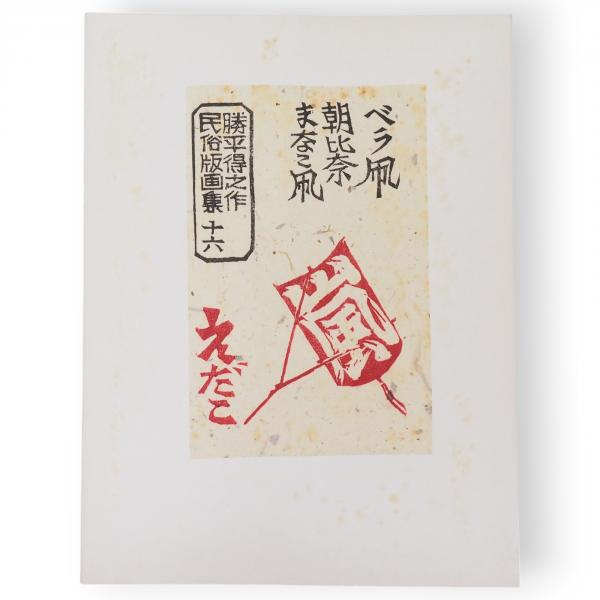 ベラ凧
朝比奈
まなこ凧
勝平得之作
民俗版画集 十六
嵐
えだこ